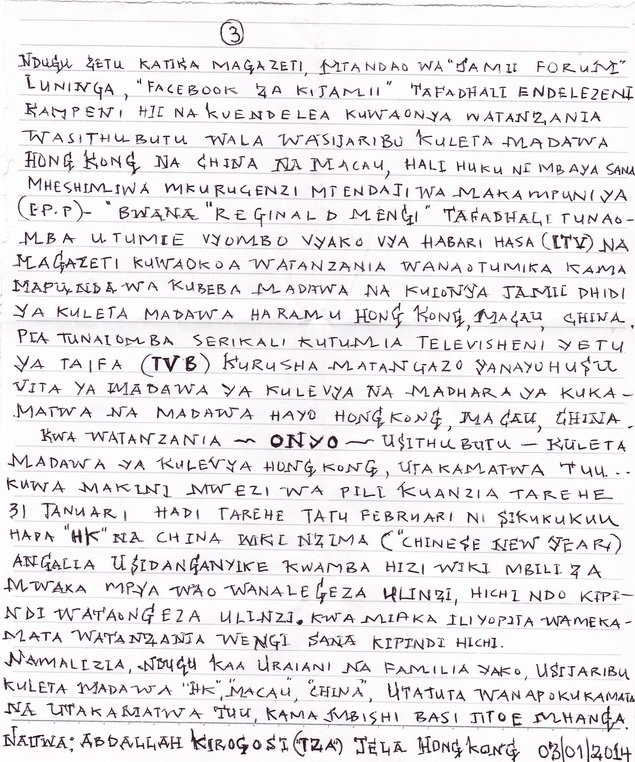 3
NDUGU ZETU KATIKA MAGAZETI, MTANDAO WA "JAMII FORUM"
LUNINGA, "FACEBOOK ZA KIJAMII" TAFADHALI ENDELEZENI
KAMPENI HII NA KUENDELEA KUWAONYA WATANZANIA
WASITHUBUTU WALA WASIJARIBU KULETA MADAWA
HONG KONG NA CHINA NA MACAU, HALI HUKU NI MBAYA SANA
MHESHIMIWA MKURUGENZI MTENDAJI WA MAKAMPUNI YA
(I.P.P) - "BWANA "REGINALD MENGI" TAFADHALI TUNAO-
MBA UTUMIE VYOMBO VYAKO VYA HABARI HASA (ITV) NA
MAGAZETI KUWAOKOA WATANZANIA WANAOTUMIKA KAMA
MAPUNDA WA KUBEBA MADAWA NA KUIONYA JAMII DHIDI
YA KULETA MADAWA HARAMU HONG KONG, MACAU, CHINA.
PIA TUNAIOMBA SERIKALI KUTUMIA TELEVISHENI YETU
YA TAIFA (TVB) KURUSHA MATANGAZO YANAYOHUSU
VITA YA MADAWA YA KULEVYA NA MADHARA YA KUKA-
MATWA NA MADAWA HAYO HONG KONG, MACAU, CHINA.
KWA WATANZANIA ~ ONYO ~ USITHUBUTU - KULETA
MADAWA YA KULEVYA HONG KONG, UTAKAMATWA TUU...
KUWA MAKINI MWEZI WA PILI KUANZIA TAREHE
31 JANUARI HADI TAREHE TATU FEBRUARI NI SIKUKUKUU
HAPA "HK" NA CHINA WIKI NZIMA ("CHINESE NEW YEAR)
ANGALIA USIDANGANYIKE KWAMBA HIZI WIKI MBILI ZA
MWAKA MPYA WAO WANALEGEZA ULINZI, HICHI NDO KIPI-
NDI WATAONGEZA ULINZI. KWA MIAKA ILIYOPITA WAMEKA-
MATA WATANZANIA WENGI SANA KIPINDI HICHI.
NAMALIZIA, NDUGU KAA URAIANI NA FAMILIA YAKO, USIJARIBU
KULETA MADAWA "HK", "MACAU", "CHINA", UTAJUTA WANAPOKUKAMATA
NA UTAKAMATWA TUU, KAMA MBISHI BASI JITOE MHANGA.
NAITWA: ABDALLAH KIROGOSI (TZA) JELA HONG KONG 03/01/2014